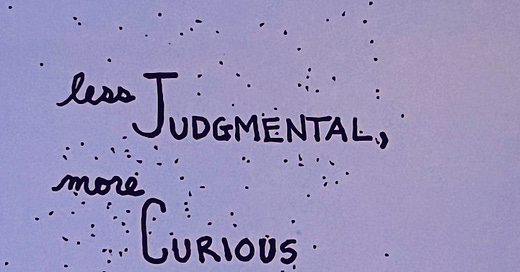 less JUDGMENTAL,
more
CURIOUS